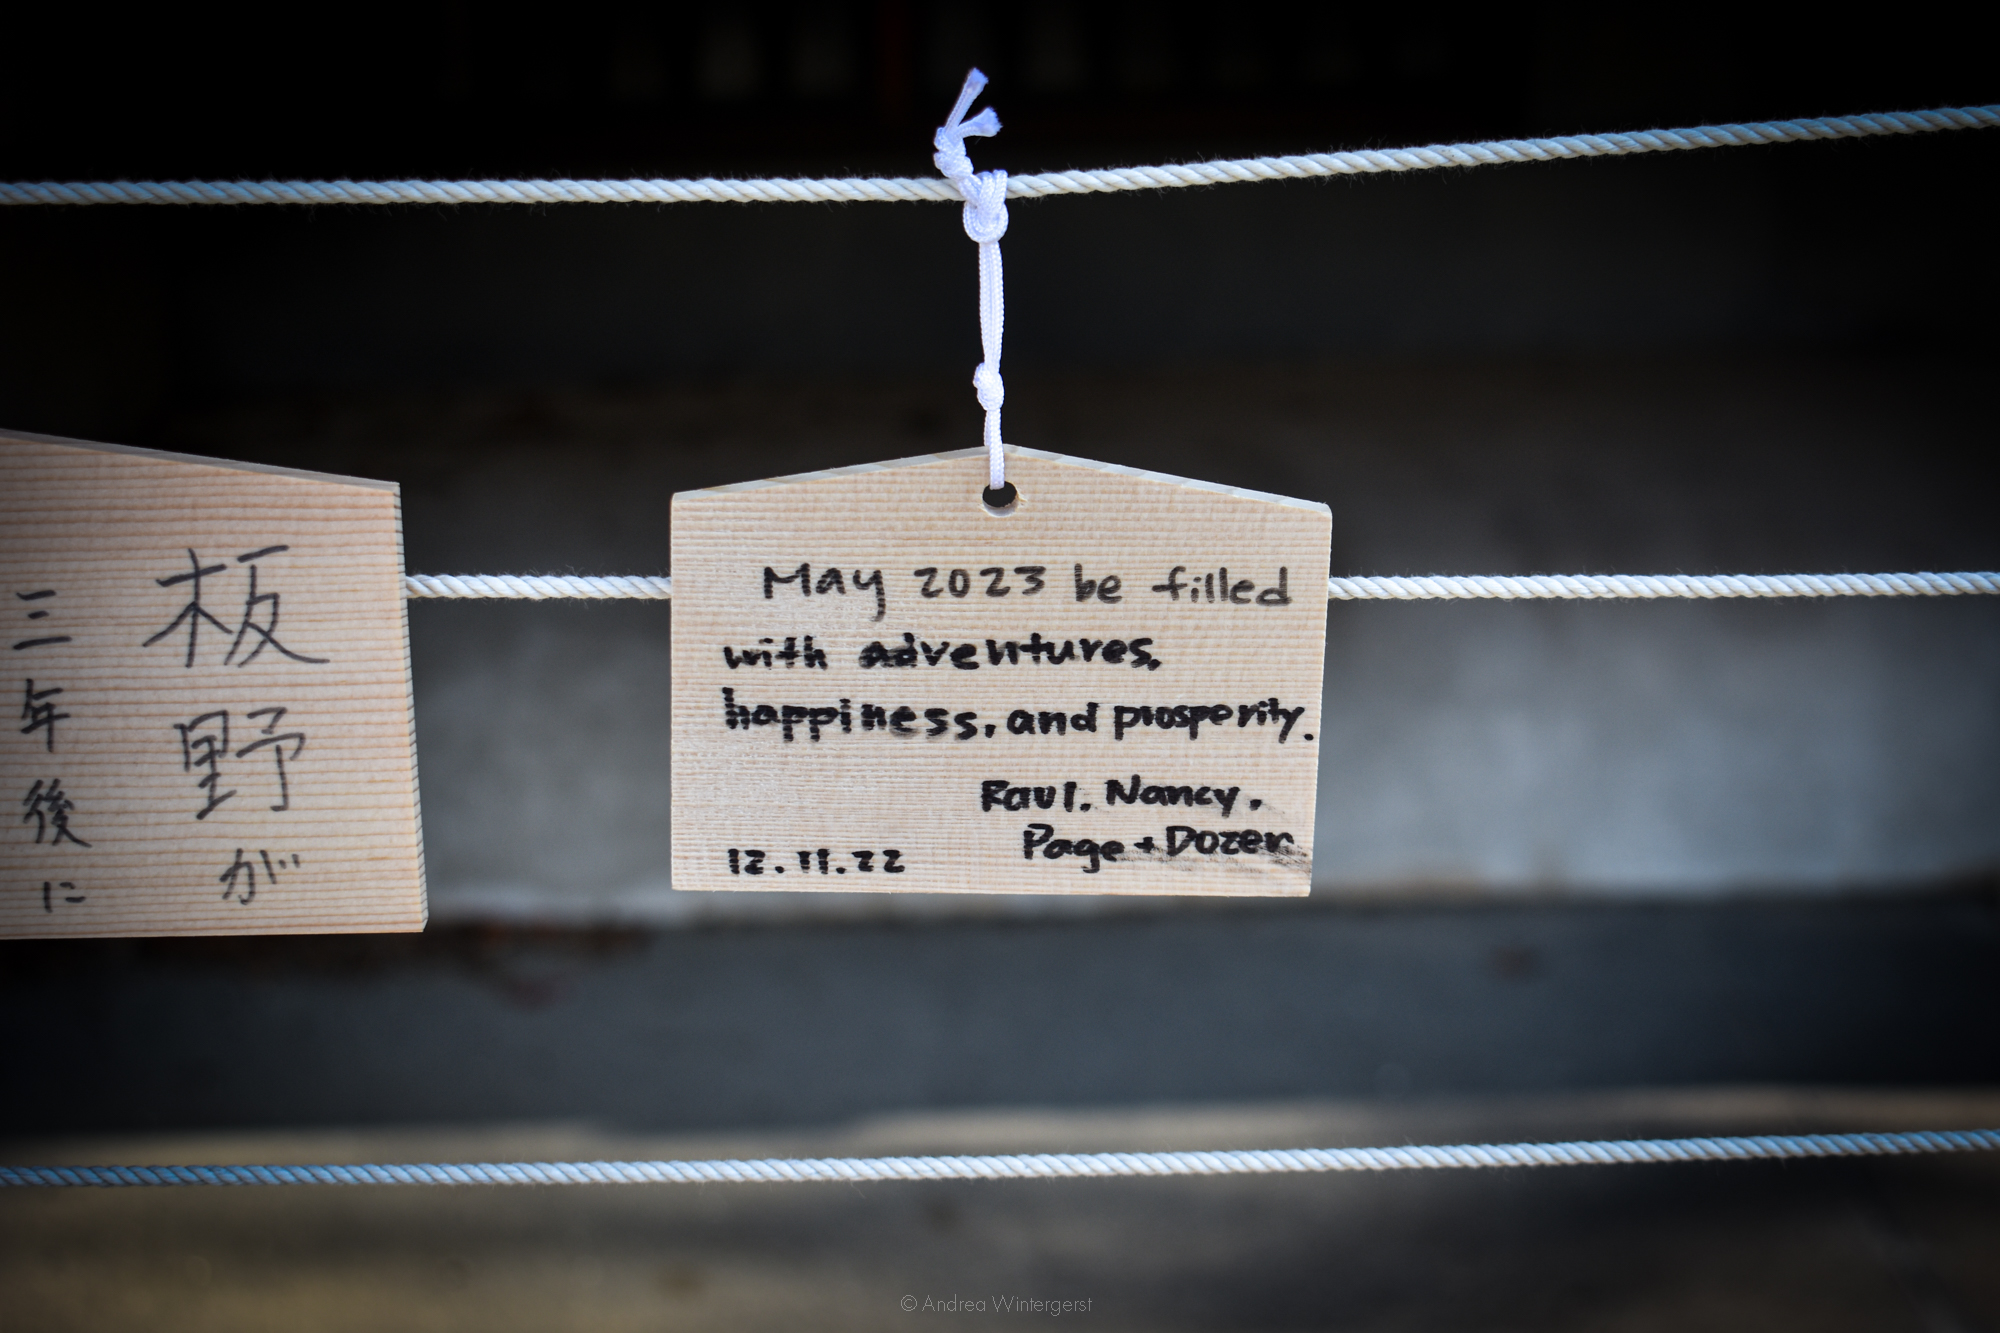 板野が
三年後に
May 2023 be filled
with adventures,
happiness, and prosperity.
Raul, Nancy,
Page + Dozer
12.11.22
© Andrea Wintergerst